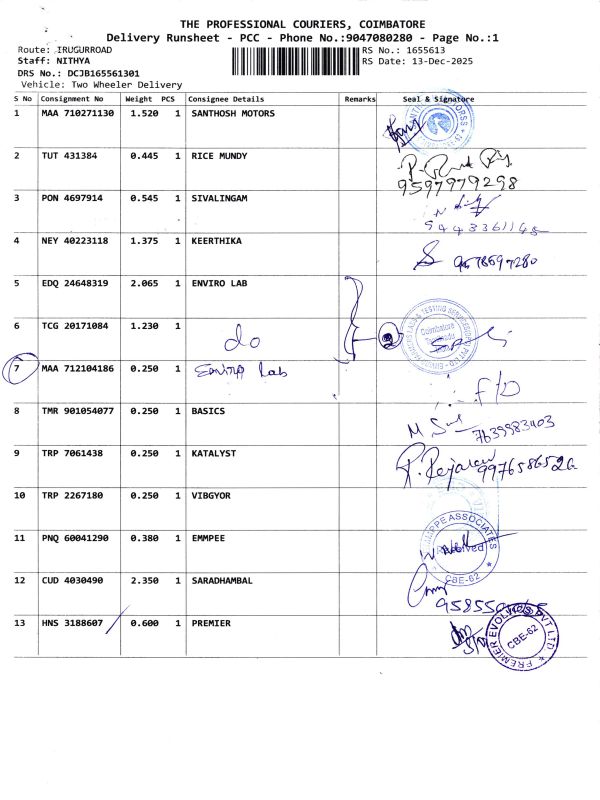 THE PROFESSIONAL COURIERS, COIMBATORE
Delivery Runsheet - PCC - Phone No.:9047080280 - Page No.:1
Route: IRUGURROAD RS No.: 1655613
Staff: NITHYA RS Date: 13-Dec-2025
DRS No.: DCJB165561301
Vehicle: Two Wheeler Delivery
S No Consignment No Weight PCS Consignee Details Remarks Seal & Signature
1 MAA 710271130 1.520 1 SANTHOSH MOTORS
2 TUT 431384 0.445 1 RICE MUNDY
9597979298
3 PON 4697914 0.545 1 SIVALINGAM
9443361145
4 NEY 40223118 1.375 1 KEERTHIKA
9578697280
5 EDQ 24648319 2.065 1 ENVIRO LAB
6 TCG 20171084 1.230 1 do
Coimbatore
7 MAA 712104186 0.250 1 Enviro Lab
8 TMR 901054077 0.250 1 BASICS
7639983403
9 TRP 7061438 0.250 1 KATALYST
9976586526
10 TRP 2267180 0.250 1 VIBGYOR
11 PNQ 60041290 0.380 1 EMMPEE
ASSOCIATES
Received
CBE-62
12 CUD 4030490 2.350 1 SARADHAMBAL
13 HNS 3188607 0.600 1 PREMIER
PREMIER EVOLVICS PVT LTD
CBE-62